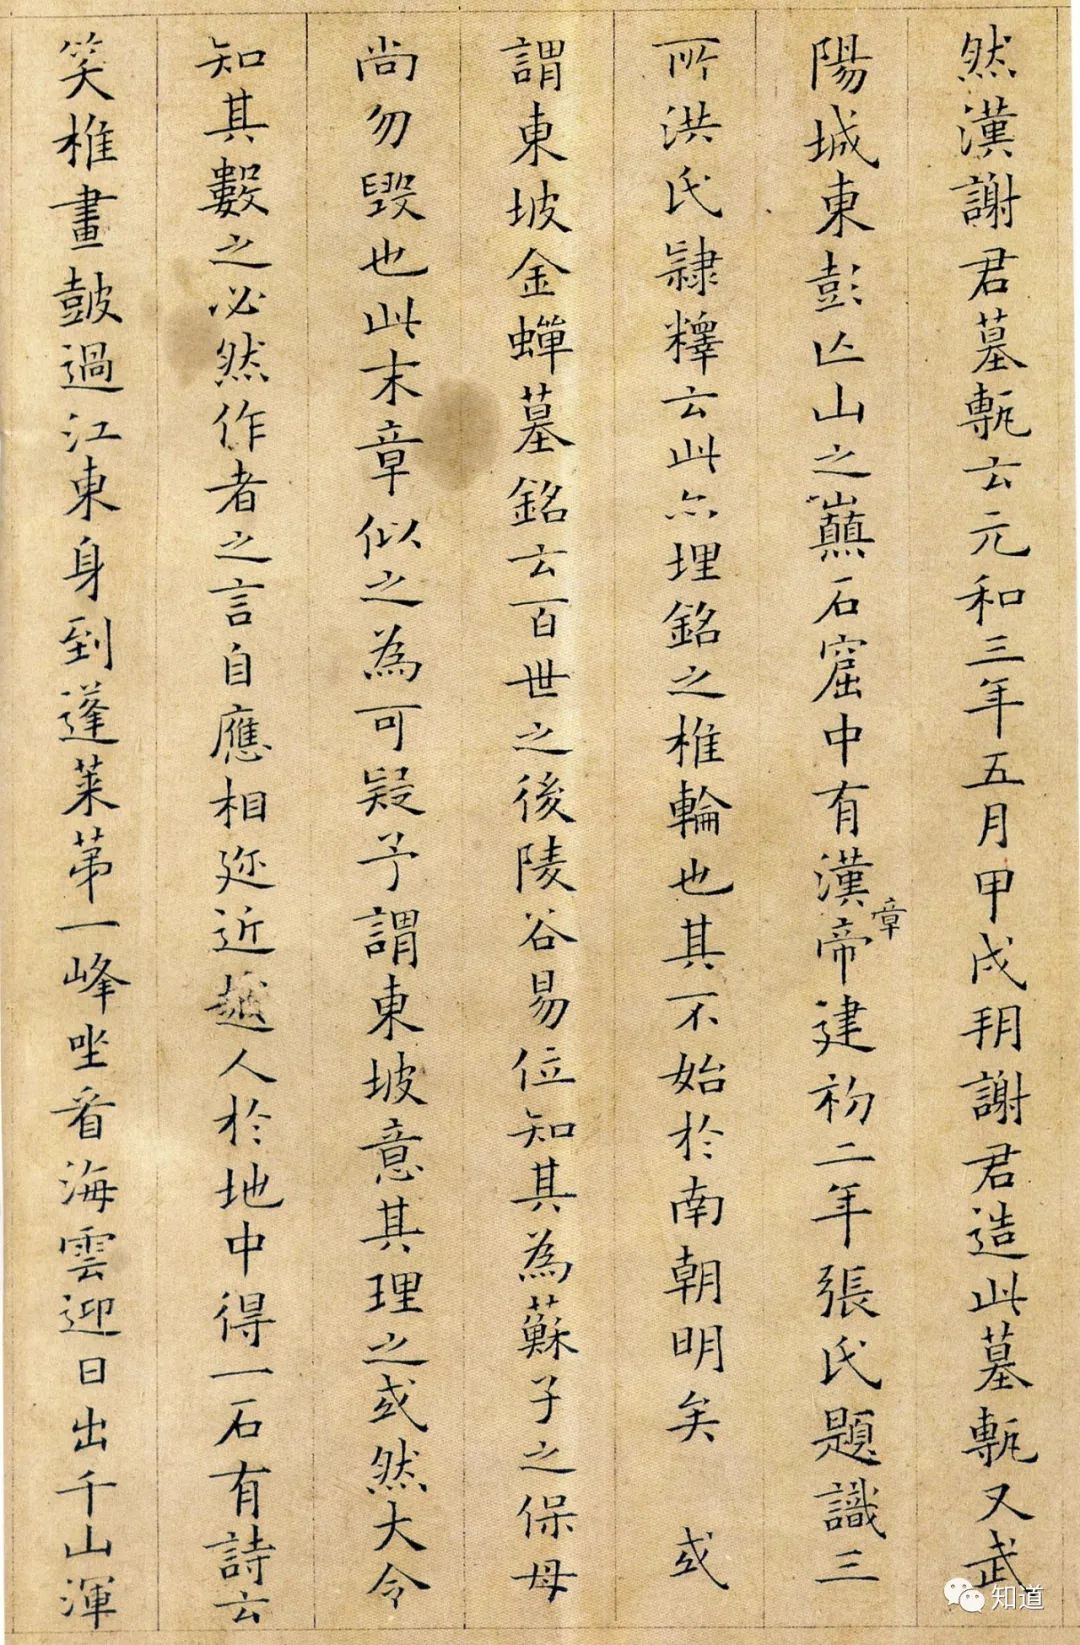 然漢謝君墓甎云元和三年五月甲戌朔謝君造此墓甎又武
陽城東彭亾山之巔石窟中有漢章帝建初二年張氏題識三
所洪氏隷釋云此亦埋銘之椎輪也其不始於南朝明矣 或
謂東坡金蟬墓銘云百世之後陵谷易位知其為蘇子之保母
尚勿毀也此末章似之為可疑予謂東坡意其理之或然大令
知其數之必然作者之言自應相近近越人於地中得一石有詩云
笑椎畫鼓過江東身到蓬萊第一峰坐看海雲迎日出千山渾
知道